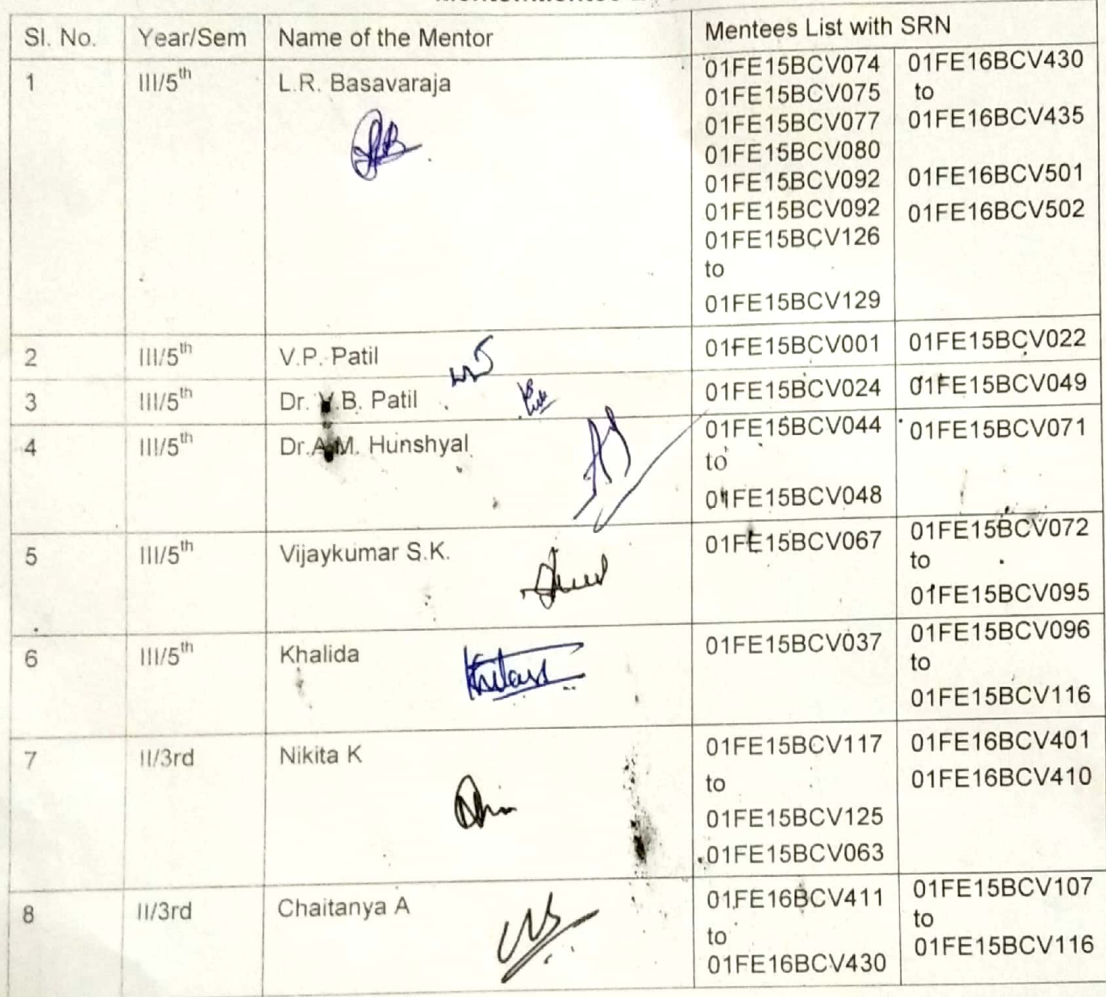 Sl. No. Year/Sem Name of the Mentor Mentees List with SRN
1 III/5th L.R. Basavaraja 01FE15BCV074 01FE16BCV430
01FE15BCV075 to
01FE15BCV077 01FE16BCV435
01FE15BCV080
01FE15BCV092 01FE16BCV501
01FE15BCV092 01FE16BCV502
01FE15BCV126
to
01FE15BCV129
2 III/5th V.P. Patil 01FE15BCV001 01FE15BCV022
3 III/5th Dr. B. Patil 01FE15BCV024 01FE15BCV049
4 III/5th Dr.A.M. Hunshyal 01FE15BCV044 01FE15BCV071
to
01FE15BCV048
5 III/5th Vijaykumar S.K. 01FE15BCV067 01FE15BCV072
to
01FE15BCV095
6 III/5th Khalida 01FE15BCV037 01FE15BCV096
to
01FE15BCV116
7 II/3rd Nikita K 01FE15BCV117 01FE16BCV401
to 01FE16BCV410
01FE15BCV125
01FE15BCV063
8 II/3rd Chaitanya A 01FE16BCV411 01FE15BCV107
to to
01FE16BCV430 01FE15BCV116